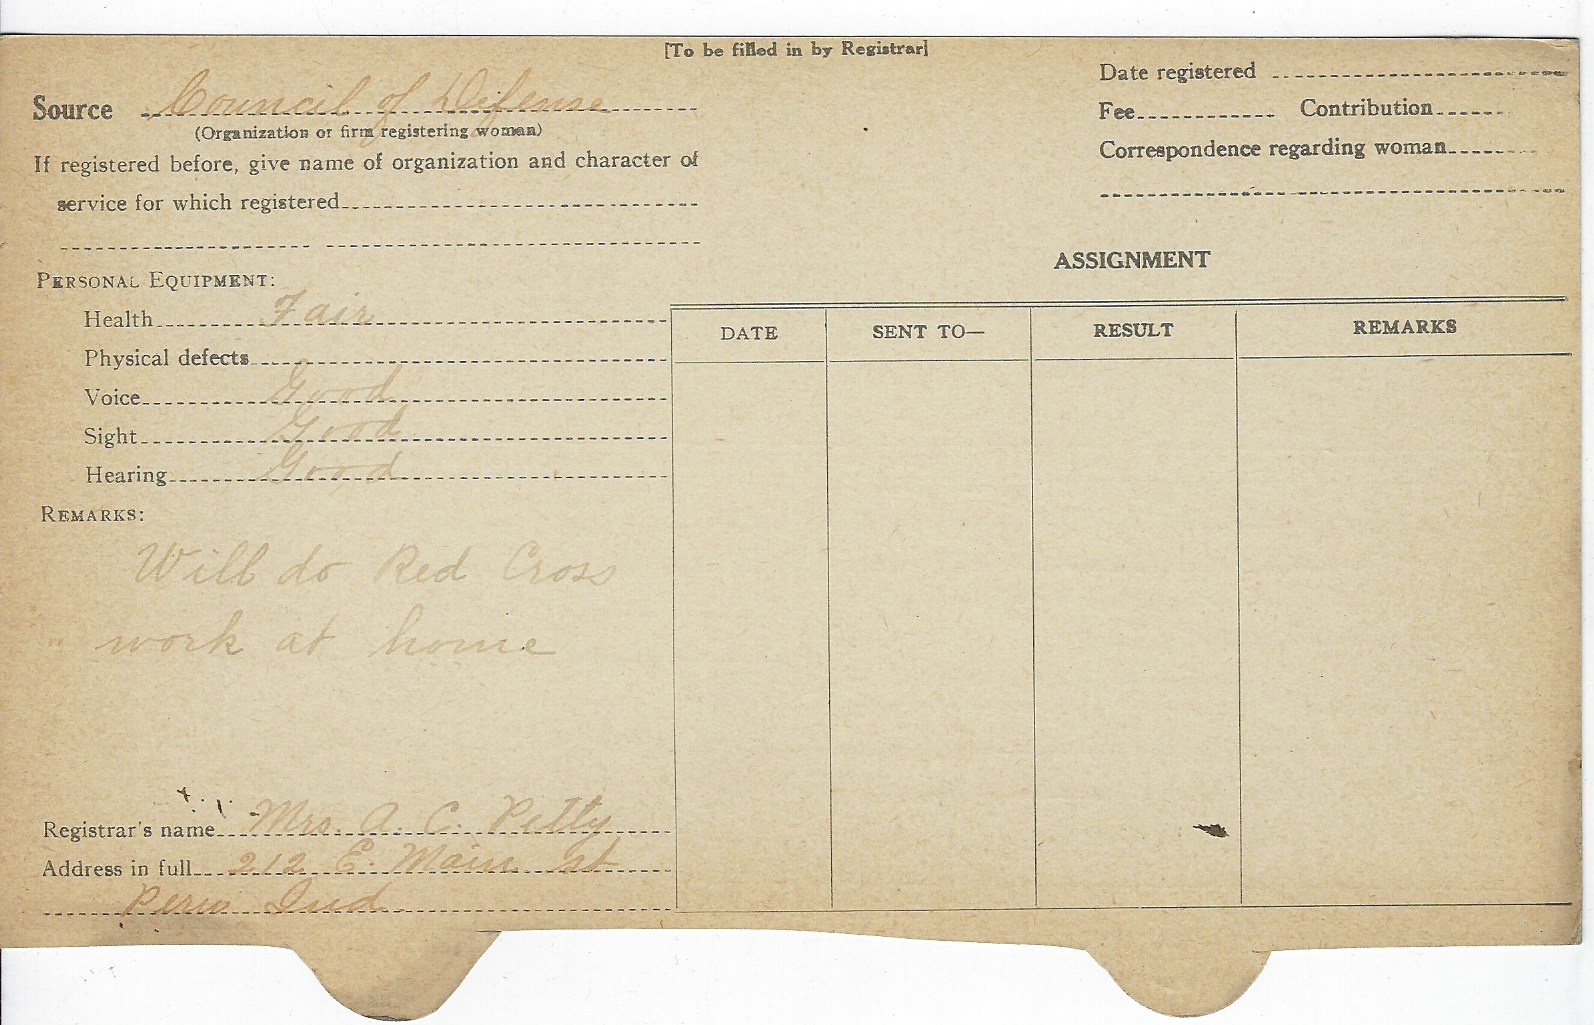 [To be filled in by Registrar]
Source Council of Defense
(Organization or firm registering woman)
If registered before, give name of organization and character of
service for which registered
PERSONAL EQUIPMENT:
Health Fair
Physical defects
Voice Good
Sight Good
Hearing Good
REMARKS:
Will do Red Cross
work at home
Registrar's name Mrs. A. C. Petty
Address in full 212 E. Main st
Peru Ind
Date registered
Fee Contribution
Correspondence regarding woman
ASSIGNMENT
DATE SENT TO— RESULT REMARKS